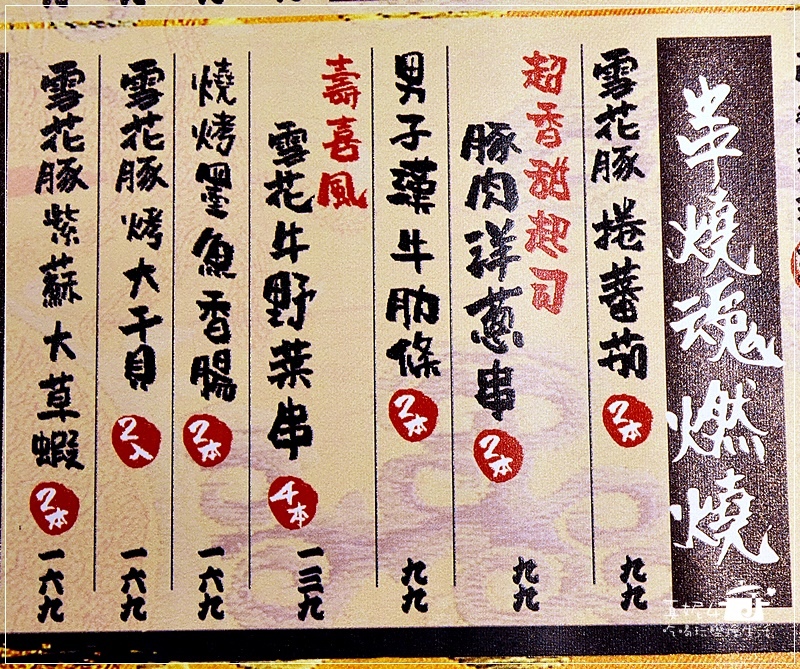 串燒魂燃燒
雪花豚捲蕃茄
2本
九九
超香甜起司
豚肉洋蔥串
2本
九九
男子漢牛肋條
2本
九九
壽喜風
雪花牛野菜串
4本
一三九
燒烤墨魚香腸
2本
一六九
雪花豚烤大干貝
2入
一六九
雪花豚紫蘇大草蝦
2本
一六九